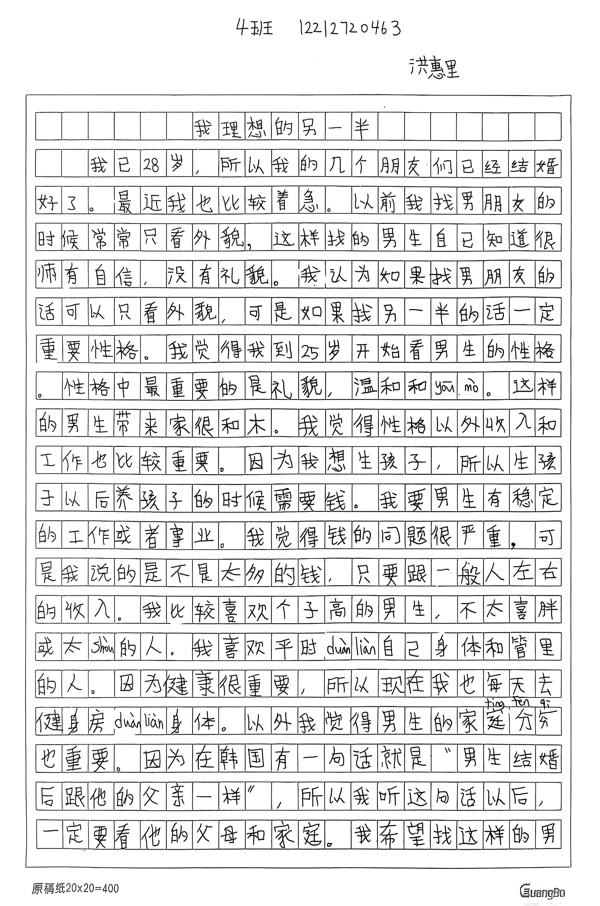 4班 12212720463
洪惠里
我理想的另一半
我已28岁，所以我的几个朋友们已经结婚
好了。最近我也比较着急。以前我找男朋友的
时候常常只看外貌，这样找的男生自己知道很
帅有自信，没有礼貌。我认为如果找男朋友的
话可以只看外貌，可是如果找另一半的话一定
重要性格。我觉得我到25岁开始看男生的性格
。性格中最重要的是礼貌，温和和yōu mò。这样
的男生带来家很和木。我觉得性格以外收入和
工作也比较重要。因为我想生孩子，所以生孩
子以后养孩子的时候需要钱。我要男生有稳定
的工作或者事业。我觉得钱的问题很严重，可
是我说的是不是太多的钱，只要跟一般人左右
的收入。我比较喜欢个子高的男生，不太喜胖
或太shòu的人。我喜欢平时duànliàn自己身体和管里
的人。因为健康很重要，所以现在我也每天去
健身房duànliàn身体。以外我觉得男生的家庭分穷
tíng fèn qi
也重要。因为在韩国有一句话就是“男生结婚
后跟他的父亲一样”，所以我听这句话以后，
一定要看他的父母和家庭。我希望找这样的男
原稿纸20x20=400
GuangBo